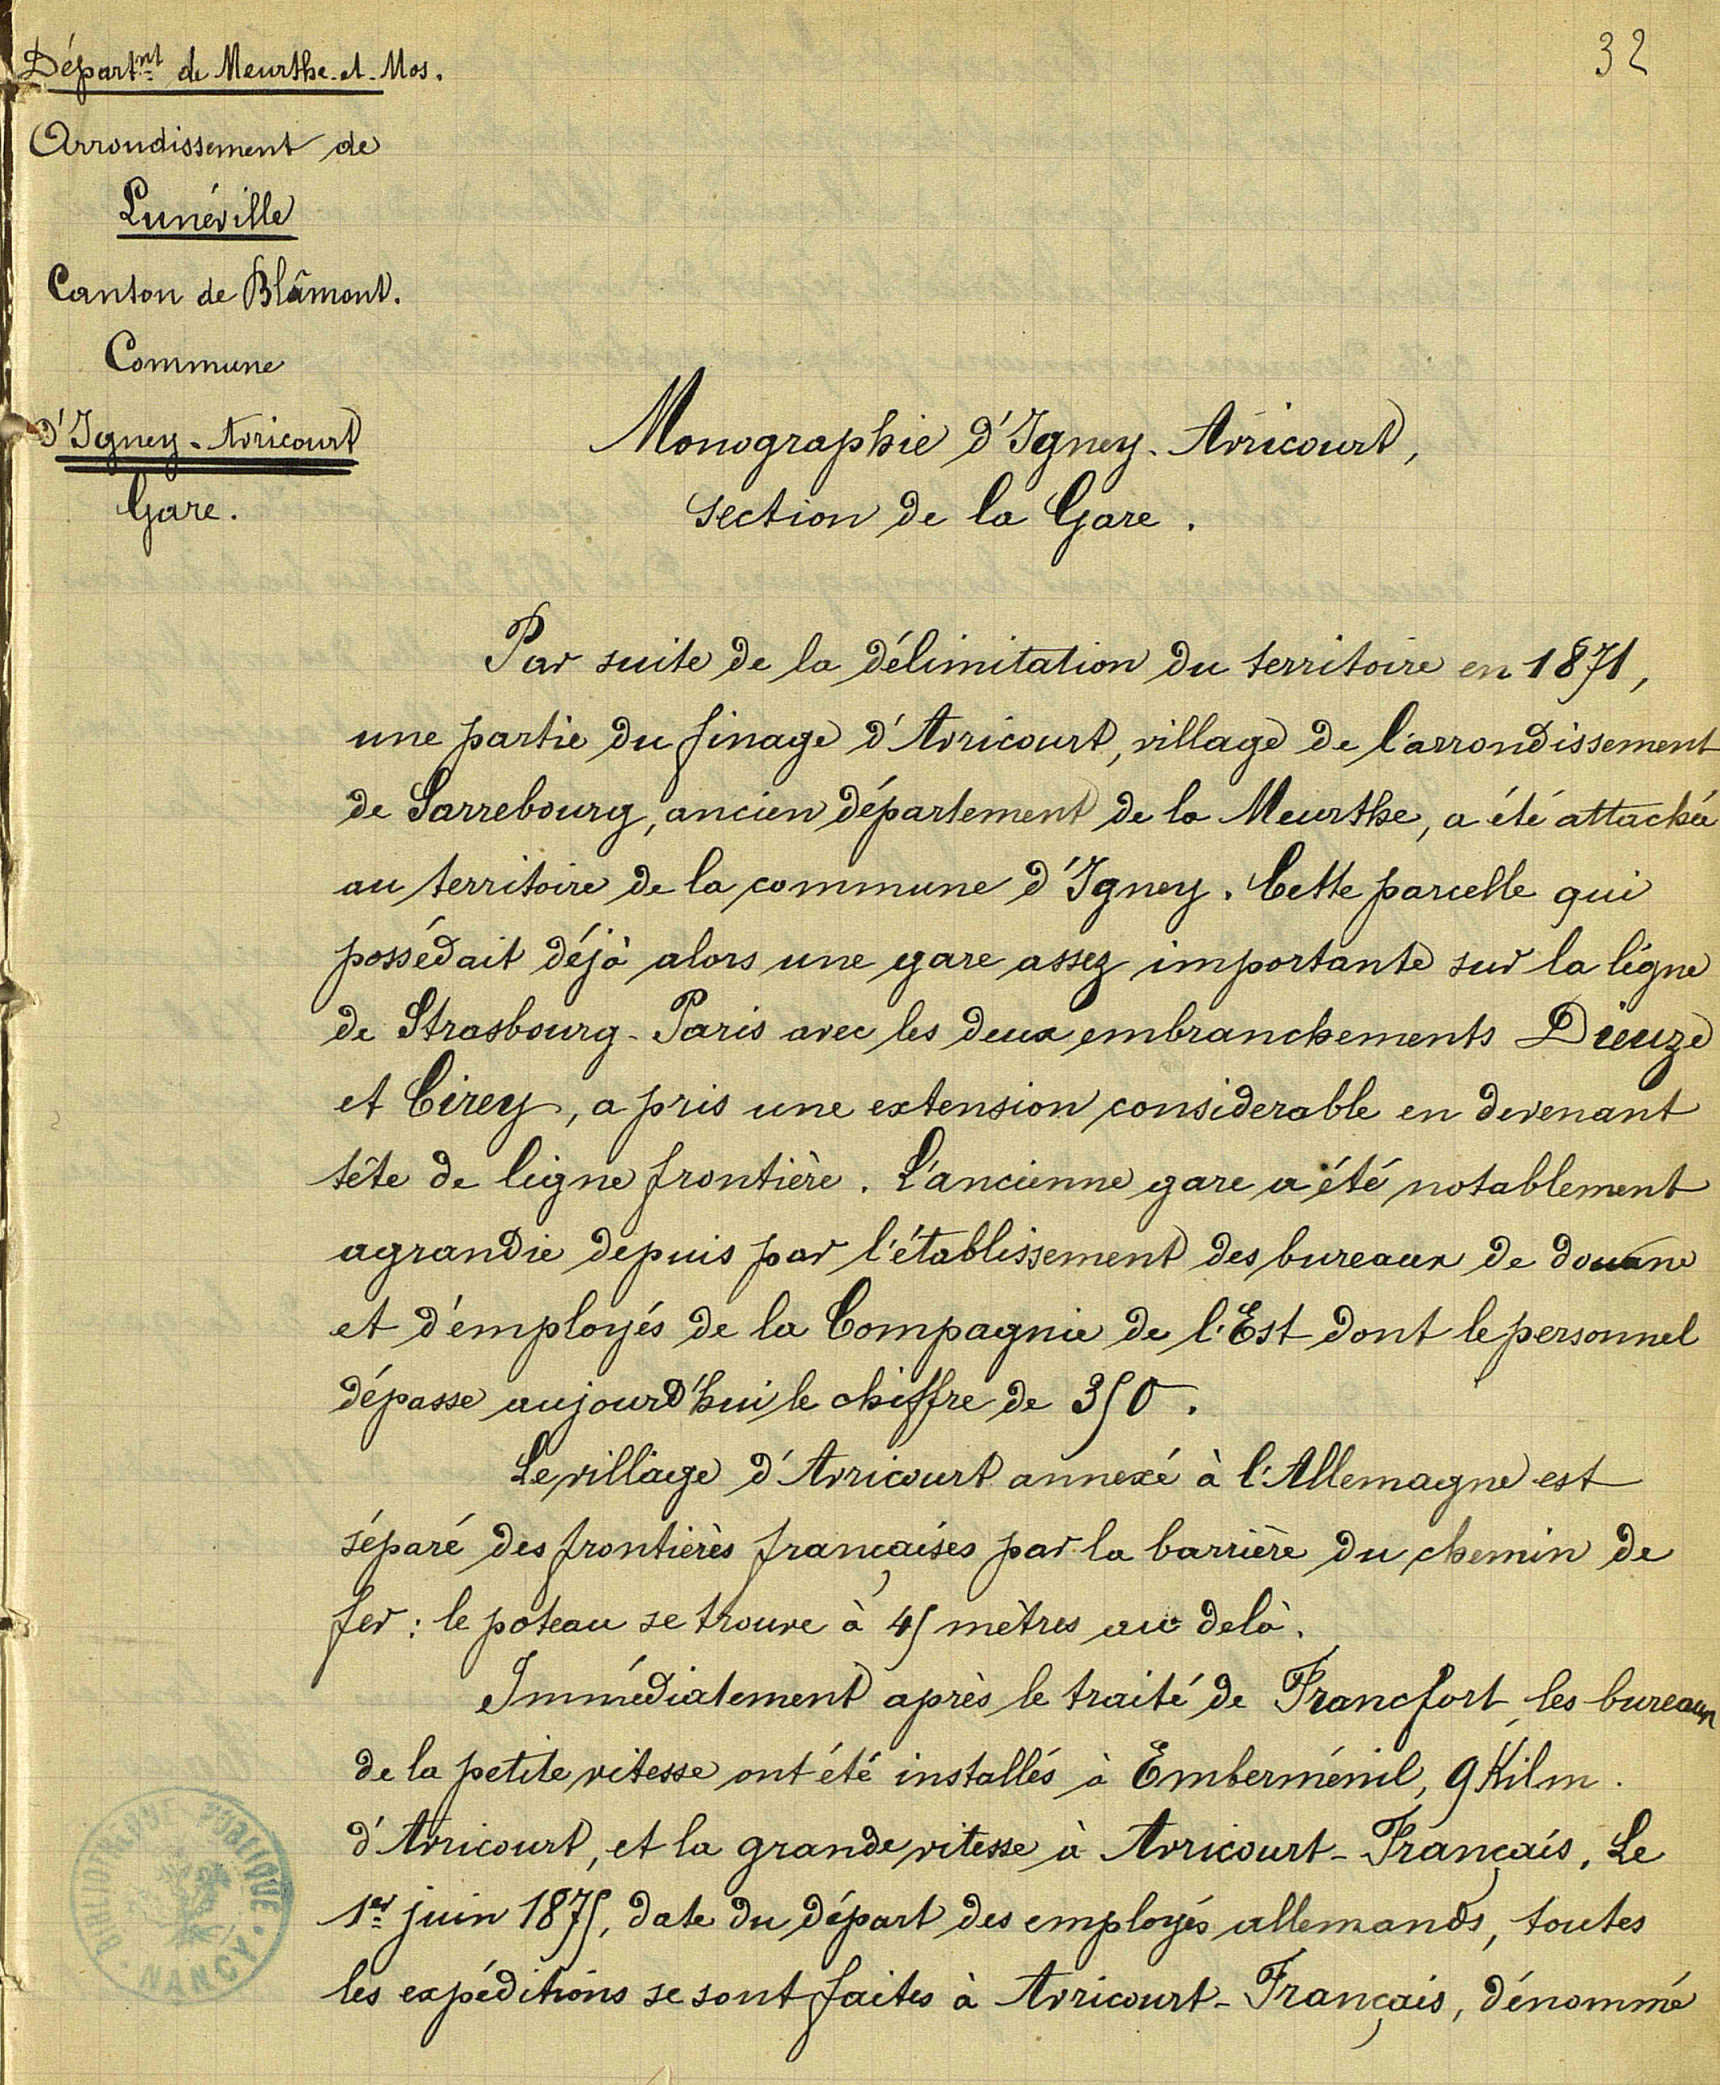 32
Départnt de Meurthe-et-Mos.
Arrondissement de
Lunéville
Canton de Blâmont.
Commune
d'Igney-Avricourt
Gare.
Monographie d'Igney-Avricourt,
section de la Gare.
Par suite de la délimitation du territoire en 1871,
une partie du finage d'Avricourt, village de l'arrondissement
de Sarrebourg, ancien département de la Meurthe, a été attachée
au territoire de la commune d'Igney. Cette parcelle qui
possédait déjà alors une gare assez importante sur la ligne
de Strasbourg-Paris avec les deux embranchements Dieuze
et Cirey, a pris une extension considerable en devenant
tête de ligne frontière. L'ancienne gare a été notablement
agrandie depuis par l'établissement des bureaux de douane
et d'employés de la Compagnie de l'Est dont le personnel
dépasse aujourd'hui le chiffre de 350.
Le village d'Avricourt annexé à l'Allemagne est
séparé des frontières françaises par la barrière du chemin de
fer : le poteau se trouve à 45 mètres au delà.
Immédiatement après le traité de Francfort, les bureaux
de la petite vitesse ont été installés à Emberménil, 9 Kilm.
d'Avricourt, et la grande vitesse à Avricourt-Français. Le
1er juin 1875, date du départ des employés allemands, toutes
les expéditions se sont faites à Avricourt-Français, dénommé
BIBLIOTHEQUE PUBLIQUE
NANCY